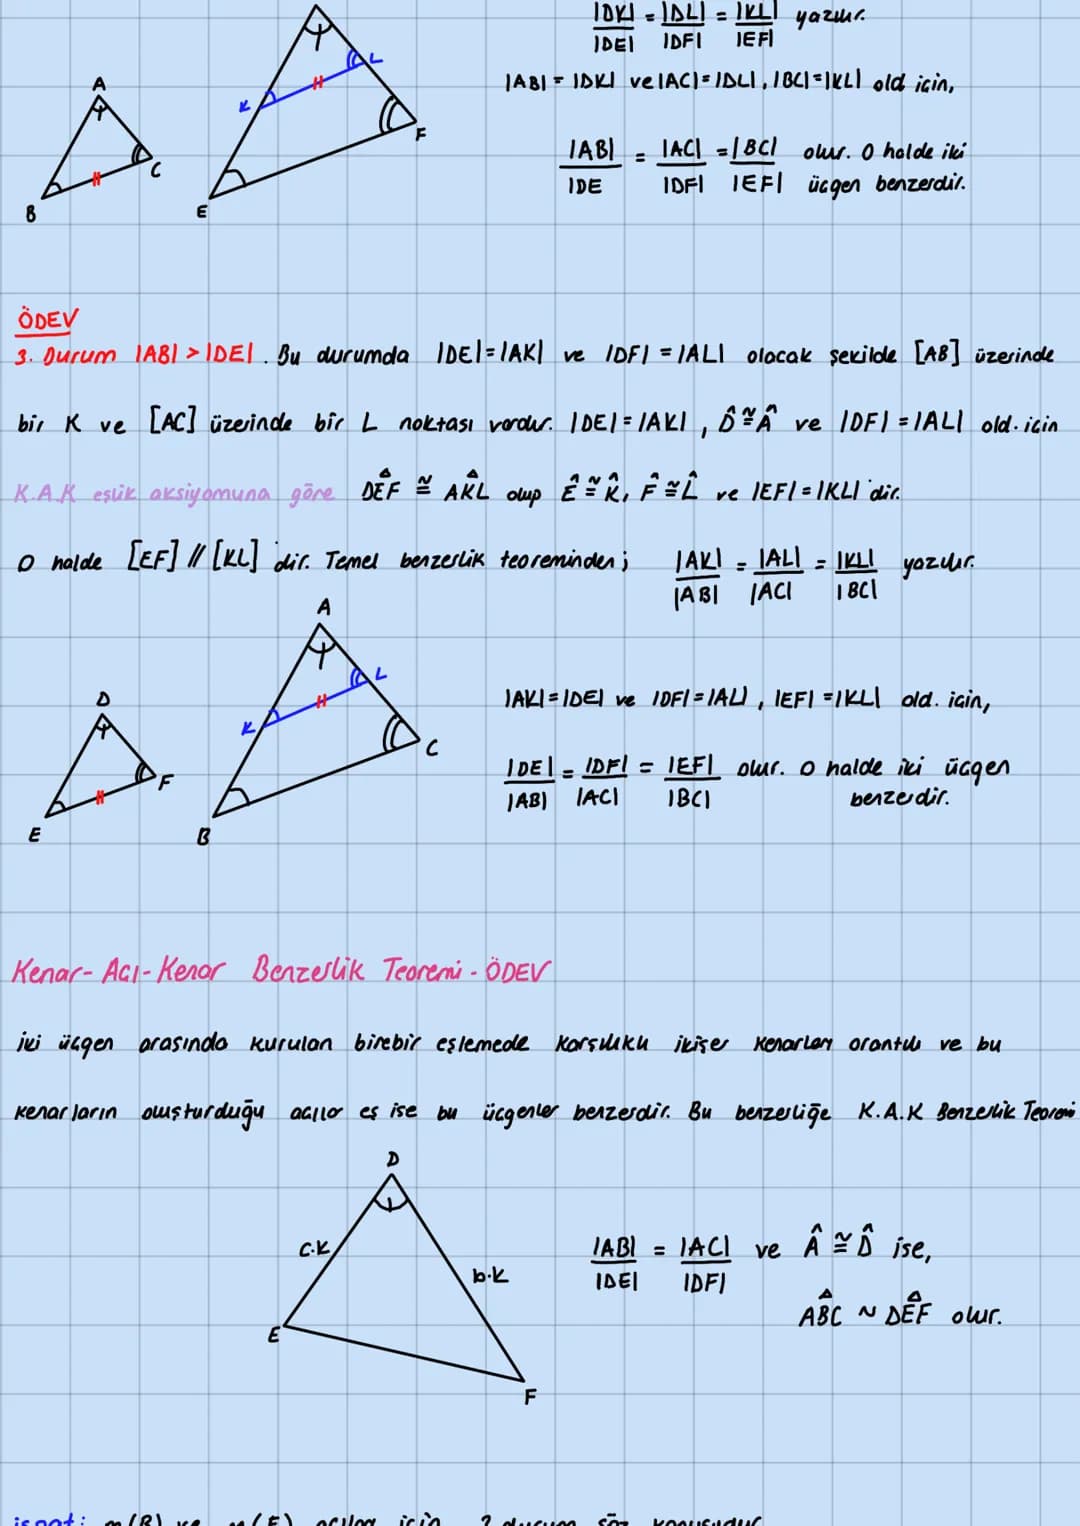 |DK| = |DL| = |KL| yazılır.
|DE| |DF| |EF|
|AB| = |DK| ve |AC| = |DL|, |BC| = |KL| old için,
|AB| = |AC| = |BC| olur. O halde iki
|DE |DF| |EF| üçgen benzerdir.
A
B
C
K
L
E
F
ÖDEV
3. Durum |AB| > |DE|. Bu durumda |DE| = |AK| ve |DF| = |AL| olacak şekilde [AB] üzerinde
bir K ve [AC] üzerinde bir L noktası vardır. |DE| = |AK|, D̂ ≅ Â ve |DF| = |AL| old. için
K.A.K eşlik aksiyomuna göre DEF ≅ AKL olup Ê ≅ K̂, F̂ ≅ L̂ ve |EF| = |KL| 'dir.
O halde [EF] // [KL] 'dir. Temel benzerlik teoreminden;
|AK| = |AL| = |KL| yazılır.
|AB| |AC| |BC|
D
E
F
A
K
L
B
C
|AK| = |DE| ve |DF| = |AL|, |EF| = |KL| old. için,
|DE| = |DF| = |EF| olur. O halde iki üçgen
|AB| |AC| |BC| benzerdir.
Kenar-Açı-Kenar Benzerlik Teoremi - ÖDEV
iki üçgen arasında kurulan birebir eşlemede karşılıklı ikişer kenarları orantılı ve bu
kenarların oluşturduğu açılar eş ise bu üçgenler benzerdir. Bu benzerliğe K.A.K Benzerlik Teoremi
D
c.k
b.k
E
F
|AB| = |AC| ve Â ≅ D̂ ise,
|DE| |DF|
ABC ~ DEF olur.
ispat: m(B) ve m(E) açıları için 2 durum söz konusudur